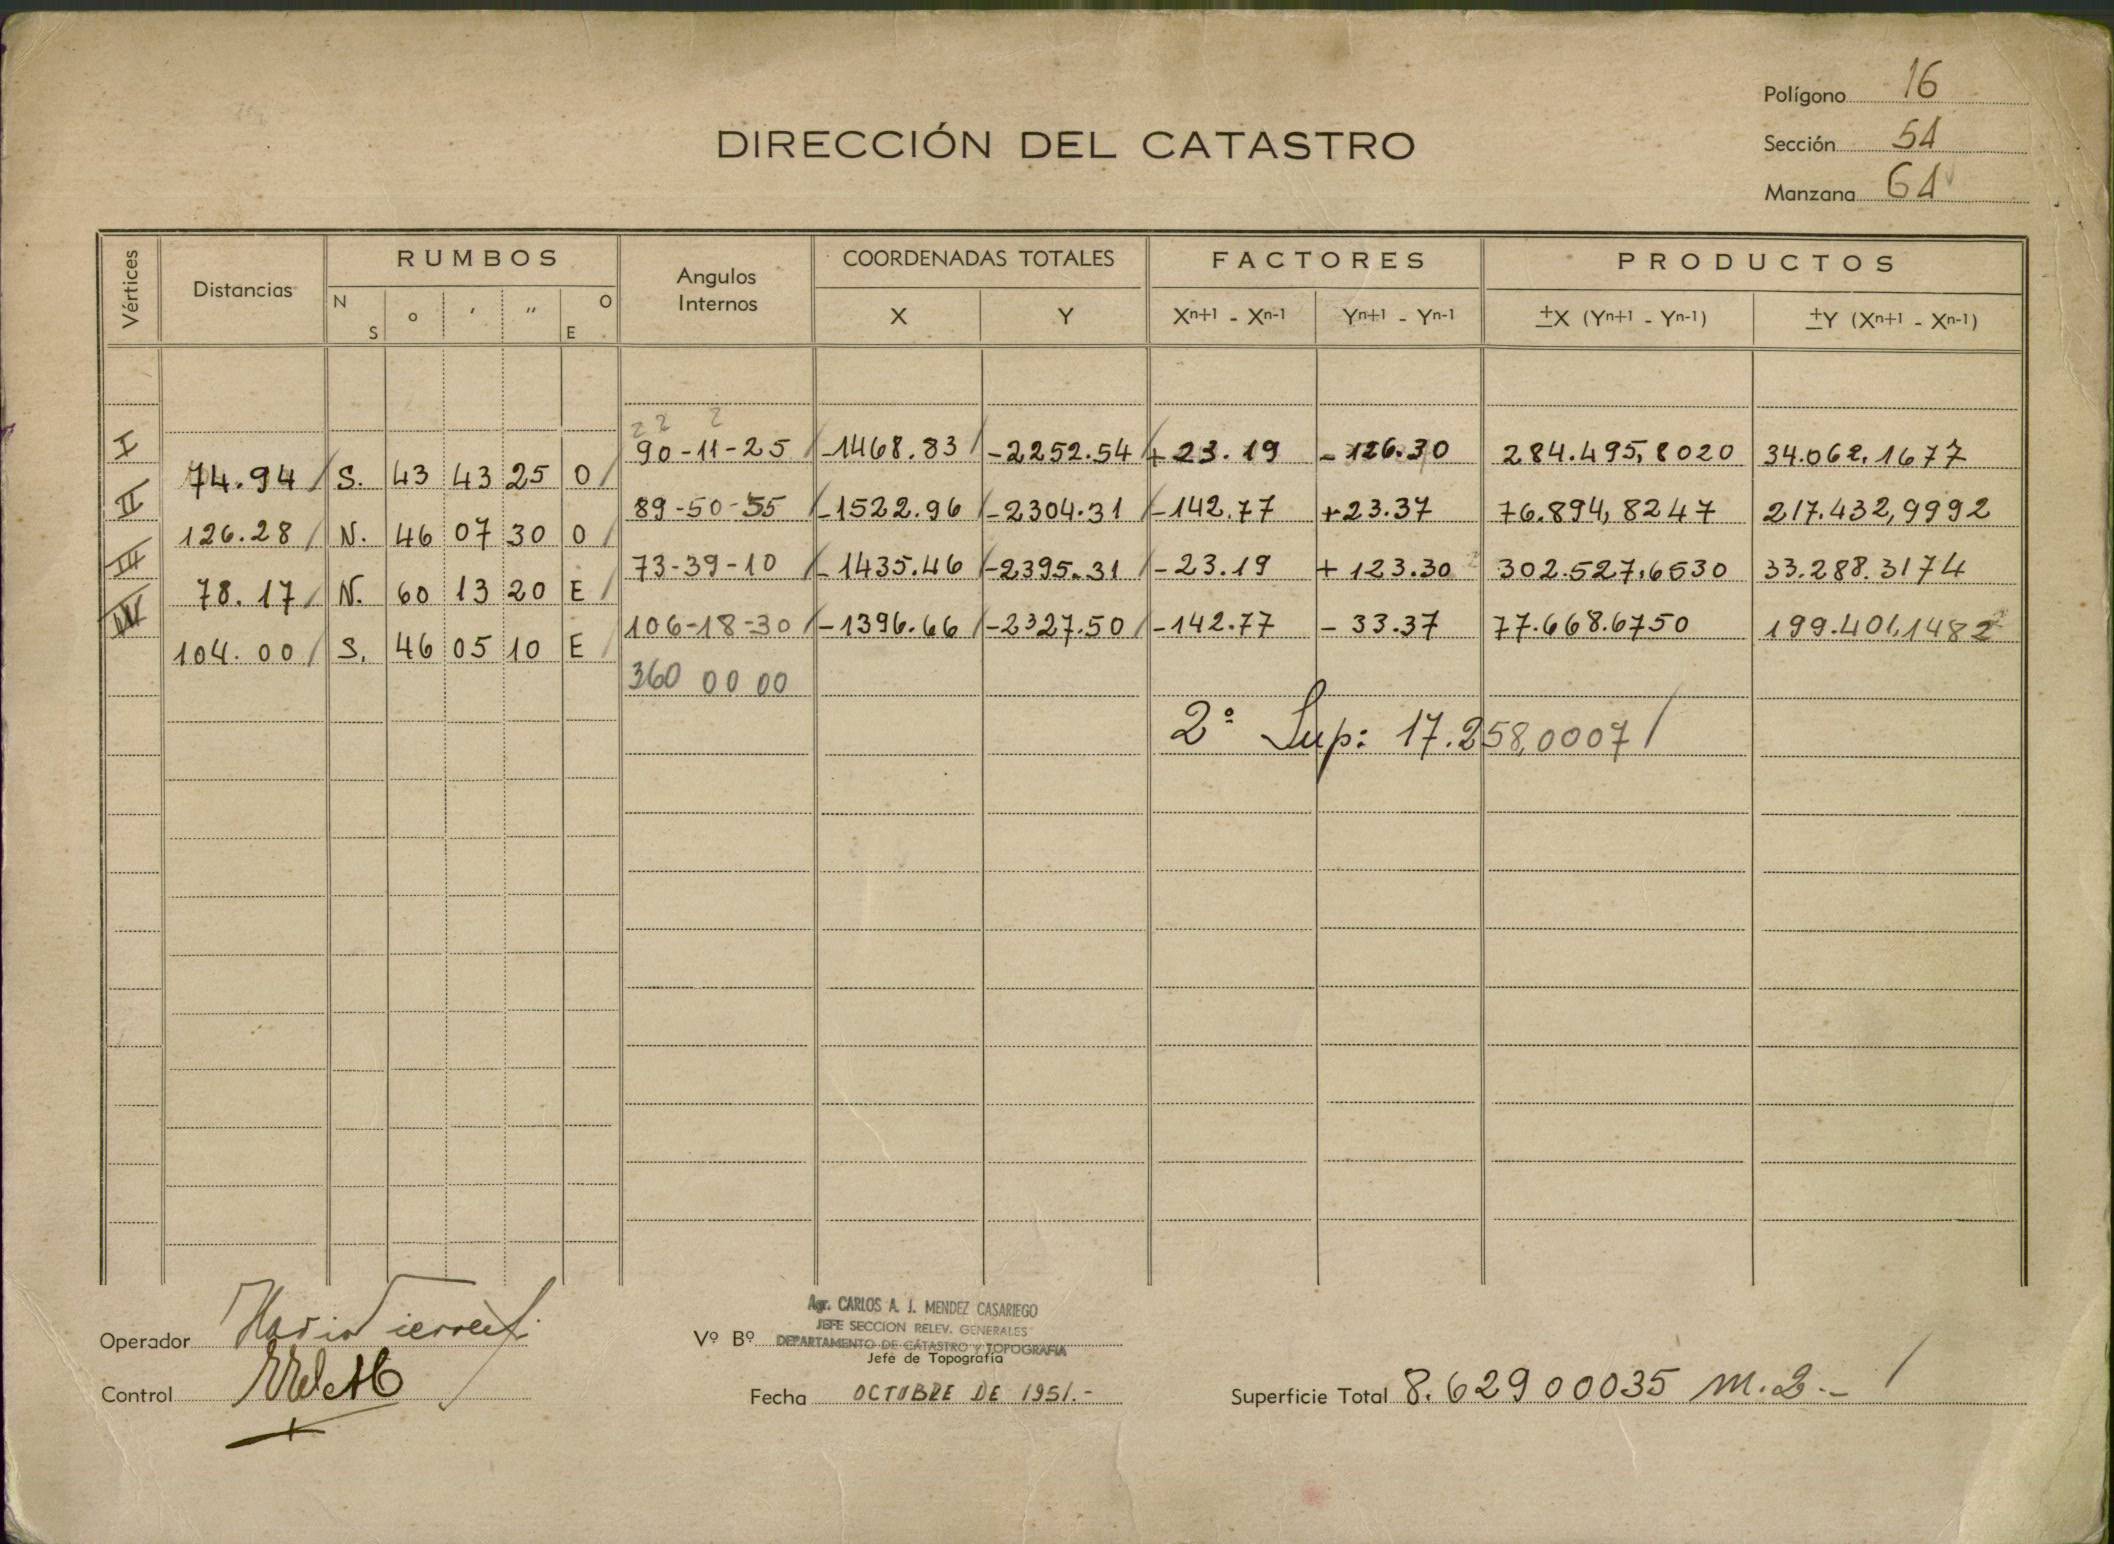 Polígono 16
DIRECCIÓN DEL CATASTRO
Sección 51
Manzana 61
Vértices Distancias RUMBOS Angulos Internos COORDENADAS TOTALES FACTORES PRODUCTOS
N S ° ′ ″ O E X Y Xn+1 - Xn-1 Yn+1 - Yn-1 ±X (Yn+1 - Yn-1) ±Y (Xn+1 - Xn-1)
2 2 2
I 90-11-25 -1468.83 -2252.54 +23.19 -126.30 284.495,8020 34.062.1677
74.94 S. 43 43 25 O
II 89-50-55 -1522.96 -2304.31 -142.77 +23.37 76.894,8247 217.432,9992
126.28 N. 46 07 30 O
III 73-39-10 -1435.46 -2395.31 -23.19 +123.30 302.527,6530 33.288.3174
78.17 N. 60 13 20 E
IV 106-18-30 -1396.66 -2327.50 -142.77 -33.37 77.668.6750 199.401,1482
104.00 S. 46 05 10 E
360 00 00
2ª Sup: 17.258,0007
Agr. CARLOS A. J. MENDEZ CASARIEGO
JEFE SECCION RELEV. GENERALES
Operador Vº Bº DEPARTAMENTO DE CATASTRO Y TOPOGRAFIA
Jefe de Topografía
Control Fecha OCTUBRE DE 1951.- Superficie Total 8.62900035 m.2.-